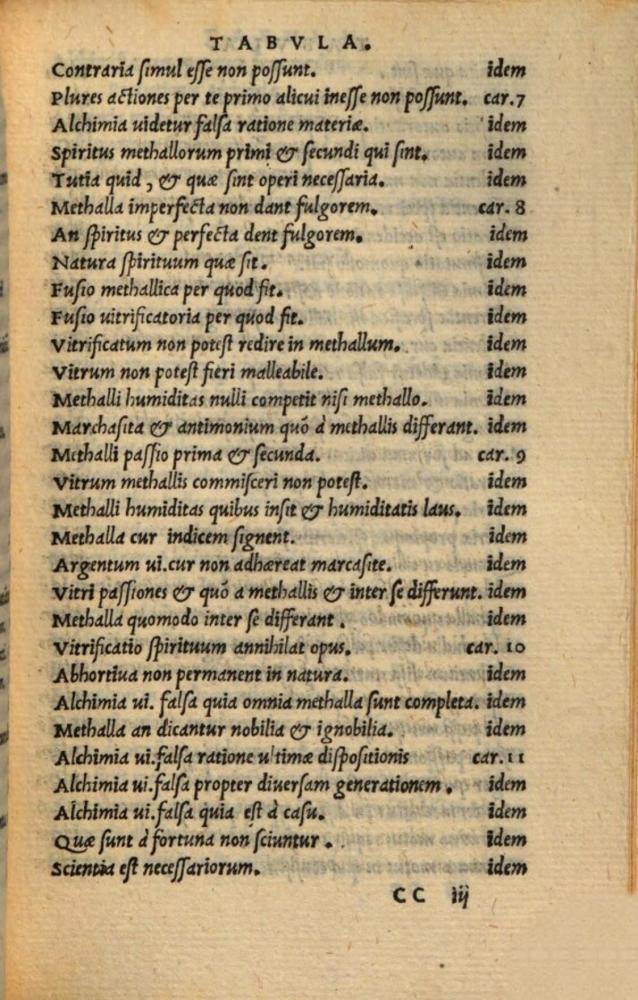 TABVLA.
Contraria ſimul eſſe non poſſunt. idem
Plures actiones per te primo alicui ineſſe non poſſunt. car.7
Alchimia uidetur falſa ratione materiæ. idem
Spiritus methallorum primi & ſecundi qui ſint. idem
Tutia quid, & quæ ſint operi neceſſaria. idem
Methalla imperfecta non dant fulgorem. car. 8
An ſpiritus & perfecta dent fulgorem. idem
Natura ſpirituum quæ ſit. idem
Fuſio methallica per quod fit. idem
Fuſio uitrificatoria per quod fit. idem
Vitrificatum non poteſt redire in methallum. idem
Vitrum non poteſt fieri malleabile. idem
Methalli humiditas nulli competit niſi methallo. idem
Marchaſita & antimonium quō à methallis differant. idem
Methalli paſſio prima & ſecunda. car. 9
Vitrum methallis commiſceri non poteſt. idem
Methalli humiditas quibus inſit & humiditatis laus. idem
Methalla cur indicem ſignent. idem
Argentum ui.cur non adhæreat marcaſite. idem
Vitri paſſiones & quō a methallis & inter ſe differunt. idem
Methalla quomodo inter ſe differant. idem
Vitrificatio ſpirituum annihilat opus. car. 10
Abhortiua non permanent in natura. idem
Alchimia ui. falſa quia omnia methalla ſunt completa. idem
Methalla an dicantur nobilia & ignobilia. idem
Alchimia ui.falſa ratione ultimæ diſpoſitionis car.11
Alchimia ui.falſa propter diuerſam generationem. idem
Alchimia ui.falſa quia eſt à caſu. idem
Quæ ſunt à fortuna non ſciuntur. idem
Scientia eſt neceſſariorum. idem
CC iij